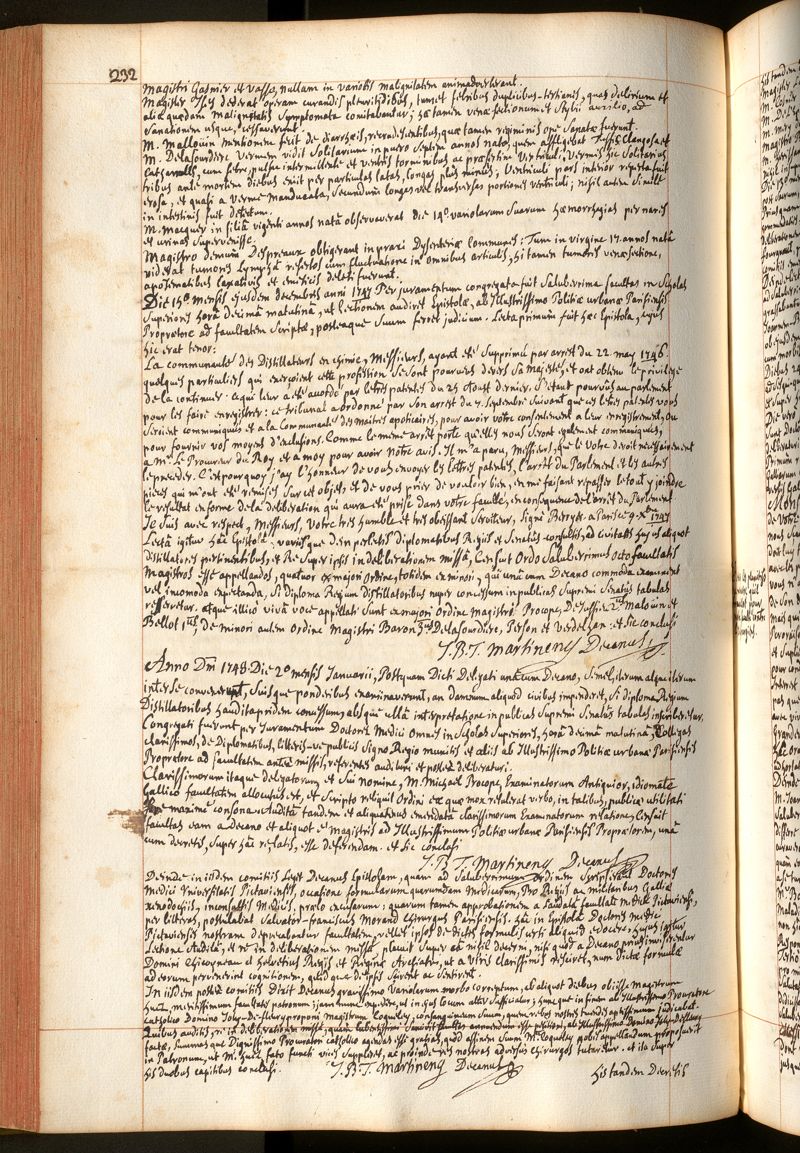 232
Magistri Gasnier et Vasse, nullam in variolis malignitatem animadverterant.
Magister dederat operam curandis pleuritidibus, tum et febribus duplicibus-tertianis, quas delirium et
alia quædam malignitatis Symptomata comitabantur; hæ tamen venæ sectionum et Stylii auxilio, ad
Sanationem usque, cessaverunt.
M. Mallouin mentionem fecit de diarrhæis, recrudescentibus, quæ tamen regiminis ope Sanatæ fuerunt.
M. Delasourdiere Vermem vidit Solitarium in puero Septem annos nato, quem affligebat Tussis Clangosa et
Catharralis, cum febre, pulsu intermittente et ventris torminibus ac præsertim Ventriculi; Vermis hic Solitarius
tribus ante mortem diebus exiit per particulas latas, longas plus minus; Ventriculi pars interior reperta fuit
erosa, et quasi a verme manducata, Secundum longas vel transversas portiones ventriculi; nihil autem Simile
in intestinis fuit detectum.
M. Macquer in filia viginti annos nata observaverat die 14ª. variolarum Suarum hæmorrhagias per nares
et urinas Supervenisse.
Magistro demum Despreaux obtigerant in praxi Dysenteriæ Communes: Tum in virgine 17. annos nata
viderat tumores Lympha refertos cum fluctuatione in omnibus articulis, hi tamen tumores venæ sectione,
apozematibus laxativis et emeticis deleti fuerunt.
Die 15ª. mensis ejusdem decembris anni 1747 Per juramentum congregata fuit Saluberrima facultas in Scholas
Superiores hora decima matutina, ut Lectionem audiret Epistolæ, ab Illustrissimo Politiæ urbanæ Parisiensis
Proprætore ad facultatem Scriptæ, posteaque Suum ferret judicium. Lecta primum fuit hæc Epistola, cujus
hic erat tenor:
La communauté des Distillateurs en chimie, Messieurs, ayant eté Supprimée par arrest du 22. may 1746.
quelques particuliers qui exerçoient cette profession Se Sont pourvus devers Sa Majesté, et ont obtenu le privilege
de la continuer. ce qui leur a eté accordé par lettres patentes du 25 Aoust dernier. S'étant pourvus au parlement
pour les faire enregistrer; ce tribunal a ordonné par Son arrest du 7. Septembre Suivant que ces lettres patentes vous
Seroient communiquées et a la Communauté des Maitres apoticaires, pour avoir votre consentement a leur enregistrement, ou
pour fournir vos moyens d'exclusions. Comme le meme arrêt porte qu'elles nous Seront egalement communiquées,
a Mr. Le Procureur du Roy et a moy pour avoir notre avis. Il m'a paru, Messieurs, que le Votre devoit necessairement
le preceder. C'est pourquoy j'ay l'honneur de vous envoyer les lettres patentes, l'arrêt du Parlement et les autres
pieces qui m'ont eté remises Sur cet objet, et de vous prier de vouloir bien, en me faisant repasser le tout y joindre
le resultat en forme de la deliberation qui aura eté prise dans votre faculté, en consequence de l'arrêt du Parlement.
Je Suis avec respect, Messieurs, Votre tres humble et tres obeissant Serviteur, Signé Berryer. a Paris ce 9. Xbre. 1747
Lecta igitur hac Epistola, variisque dein perlectis diplomatibus Regiis et Senatus-consultis, ad civitatis hujus aliquot
distillatores pertinentibus, et Re Super ipsis in deliberationem missa, Censuit Ordo Saluberrimus Octo facultatis
Magistros esse appellandos, quatuor ex majori ordine, totidem ex minori, qui una cum Decano commoda examinent
vel incommoda expectanda, Si diploma Regium distillatoribus nuper concessum in publicas Supremi Senatus tabulas
referretur. atque illico viva voce appellati Sunt ex majori Ordine Magistri Procope, De Jussieu 2us, Malouin et
Bellot 1us; de minori autem Ordine Magistri Baron 3us Delasourdiere, Person et Verdelhan. et Sic conclusi
J.B.T. Martinenq Decanus.
Anno Dni. 1748. Die 2º. mensis Januarii, Postquam Dicti Delegati una cum Decano, Simel, iterum atque iterum
inter Se convenerunt, Suisque ponderibus examinaverunt, an damnum aliquod civibus impenderet, Si diploma Regium
Distillatoribus haud ita pridem concessum, absque ulla interpretatione in publicas Supremi Senatus tabulas inscriberetur,
Congregati fuerunt per Juramentum Doctores Medici Omnes in Scholas Superiores, hora decima matutina, Collegas
clarissimos, de Diplomatibus, litteris-ve publicis Signo Regio munitis et aliis ab Illustrissimo Politiæ urbanæ Parisiensis
Proprætore ad facultatem antea missis, referentes audituri et postea deliberaturi.
Clarissimorum itaque delegatorum et Sui nomine, M. Michael Procope, Examinatorum Antiquior, idiomate
Gallico facultatem allocutus est, et Scripto reliquit Ordini ea quæ mox retulerat verbo, in talibus, publicæ utilitati
maxime consona. Audita tandem et aliquatenus emendata clarissimorum Examinatorum relatione, Censuit
facultas eam a Decano et aliquot e magistris ad Illustrissimum Politiæ urbanæ Parisiensis Proprætorem, una
cum decretis, Super hac re, latis, esse deferendam. et Sic conclusi
J.B.T. Martinenq Decanus.
Deinde in iisdem comitiis Legit Decanus Epistolam, quam ad Saluberrimum Ordinem Scripserant Doctores
Medici Universitatis Pictaviensis, occasione formularum quarumdam Medicarum, Pro Regiis ac militaribus Galliæ
xenodochiis, inconsultis Medicis, prælo excusarum; quarum tamen approbationem a Laudata facultate Medicæ Pictaviensi,
per litteras, postulabat Salvator-franciscus Morand Chirurgus Parisiensis. hac in Epistola Doctores Medici
Pictavienses nostram deprecabantur facultatem, vellet ipsos de dictis formulis certi aliquid edocere. hujus igitur
Lectione Audita, et re in deliberationem missa, placuit Super ea nihil decerni, nisi quod a Decano prius inviserentur
Domini Chicoyneau et Helvetius Regis et Reginæ Archiatri, ut a viris clarissimis resciret, num dictæ formulæ
ad eorum pervenerint cognitionem, quid que de ipsis Sperent ac Sentirent.
In iisdem postea comitiis Dixit Decanus gravissimo Variolarum morbo correptum, ab aliquot diebus obiisse magistrum
huet, meritissimum facultatis patronum; jam nunc expedire, ut in ejus locum alter Sufficiatur; hunc que in finem ab Illustrissimo Procuratore
catholico Domino Joly-De-fleury proponi magistrum Coqueley, consanguineum Suum, quem res nostras tuendi aptissimum judicabat.
Quibus auditis, re in deliberationem missa, quam lubentissime Censuit facultas annuendum esse petitioni, ab Illustrissimo Domino Joly-De-fleury
factæ, Summas que Dignissimo Procuratori catholico agendas esse gratias, quod affinem Suum M. Coqueley nobis appellandum proposuerit
in Patronum, ut M. huet fato functi vices Suppleret, ac proinde res nostras adversus chirurgos tutaretur. et ita Super
his duobus capitibus conclusi. J.B.T. Martinenq Decanus
his tandem Decretis